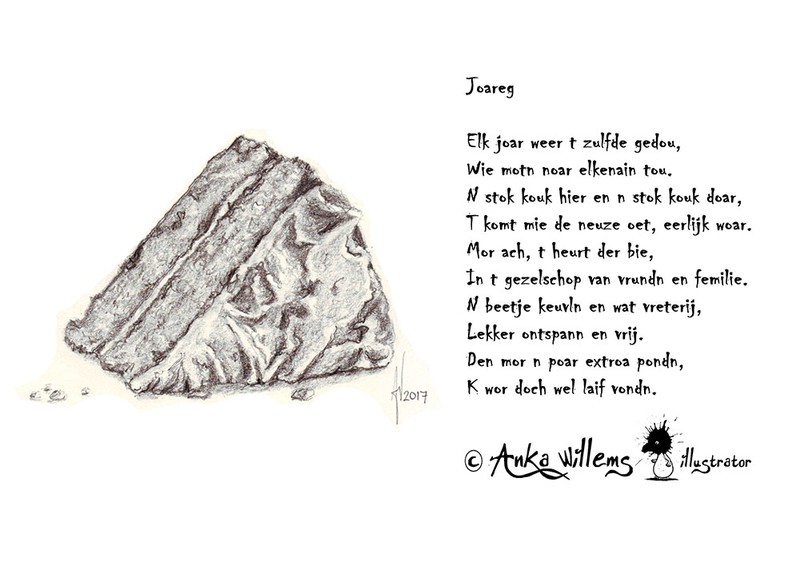 Joareg
Elk joar weer t zulfde gedou,
Wie motn noar elkenain tou.
N stok kouk hier en n stok kouk doar,
T komt mie de neuze oet, eerlijk woar.
Mor ach, t heurt der bie,
In t gezelschop van vrundn en femilie.
N beetje keuvln en wat vreterij,
Lekker ontspann en vrij.
Den mor n poar extroa pondn,
K wor doch wel laif vondn.
© Anka Willems illustrator
2017